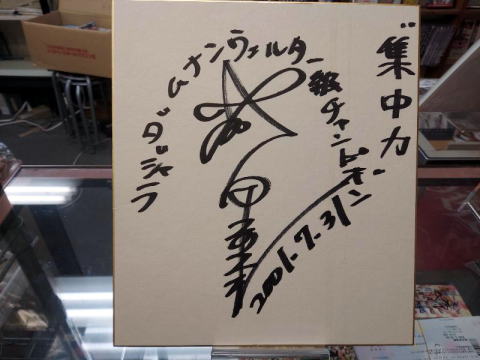 “集中力
ラジャダムナンウェルター級チャンピオン
2001.7.31